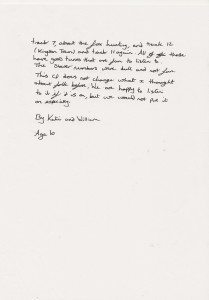 track 7, about the fox hunting, and track 12
(Kingston Town) and track 11 again. All of these
have good tunes that are fun to listen to.
The slower numbers were dull and not fun.
This CD does not change what I thought
about folk before. We are happy to listen
to it if it is on, but we would not put it
on especially.
By Katie and William
Age 10